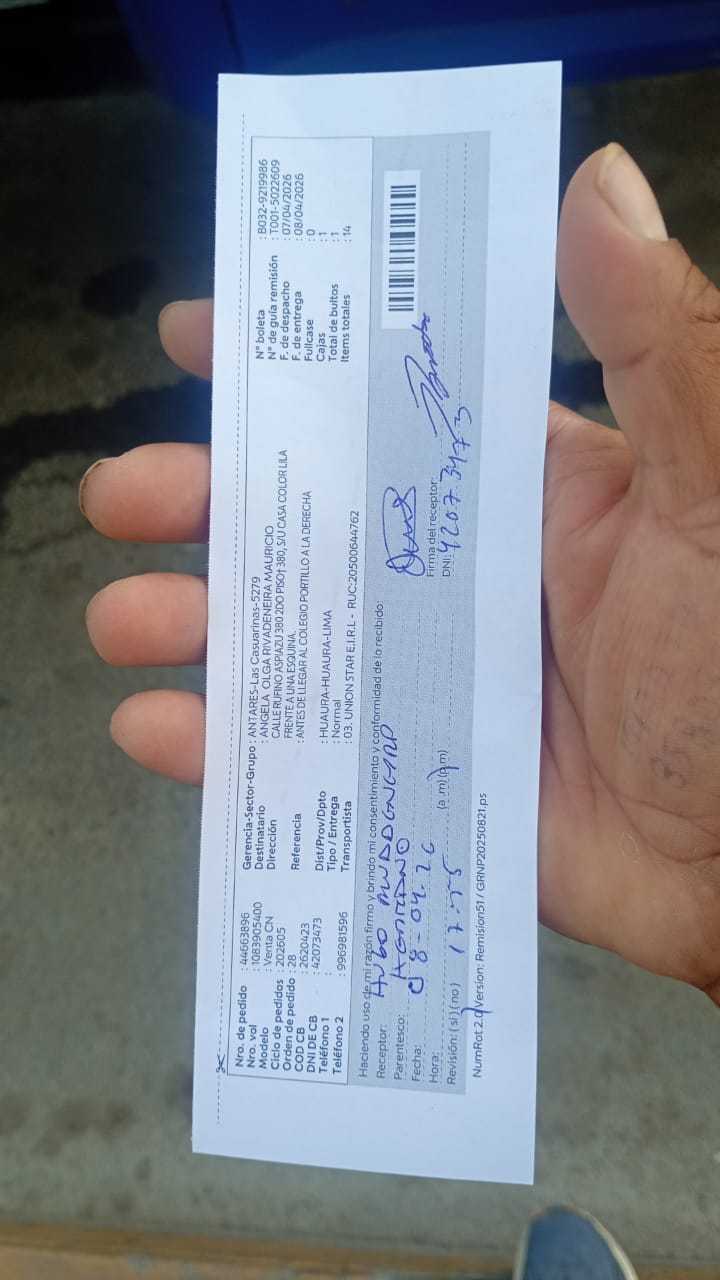 Nro. de pedido : 44663896
Nro. vol : 1083905400
Modelo : Venta CN
Ciclo de pedidos : 202605
Orden de pedido : 28
COD CB : 2620423
DNI DE CB : 42073473
Teléfono 1 :
Teléfono 2 : 996981596
Gerencia-Sector-Grupo : ANTARES-Las Casuarinas-5279
Destinatario : ANGELA OLGA RIVADENEIRA MAURICIO
Dirección : CALLE RUFINO ASPIAZU 380 2DO PISO 380, S/U CASA COLOR LILA
FRENTE A UNA ESQUINA.
Referencia : ANTES DE LLEGAR AL COLEGIO PORTILLO A LA DERECHA
Dist/Prov/Dpto : HUAURA-HUAURA-LIMA
Tipo / Entrega : Normal
Transportista : 03. UNION STAR E.I.R.L - RUC:20500644762
N° boleta : B032-9219986
N° de guía remisión : T001-5022609
F. de despacho : 07/04/2026
F. de entrega : 08/04/2026
Fullcase : 0
Cajas : 1
Total de bultos : 1
Items totales : 14
Haciendo uso de mi razón firmo y brindo mi consentimiento y conformidad de lo recibido:
Receptor: HUGO
Parentesco:
Fecha: 08-04-26
Hora: (a.m)(p.m)
Revisión: (si)(no)
Firma del receptor:
DNI: 42073473
NumRot 2.0 Version: Remision51 / GRNP20250821.ps